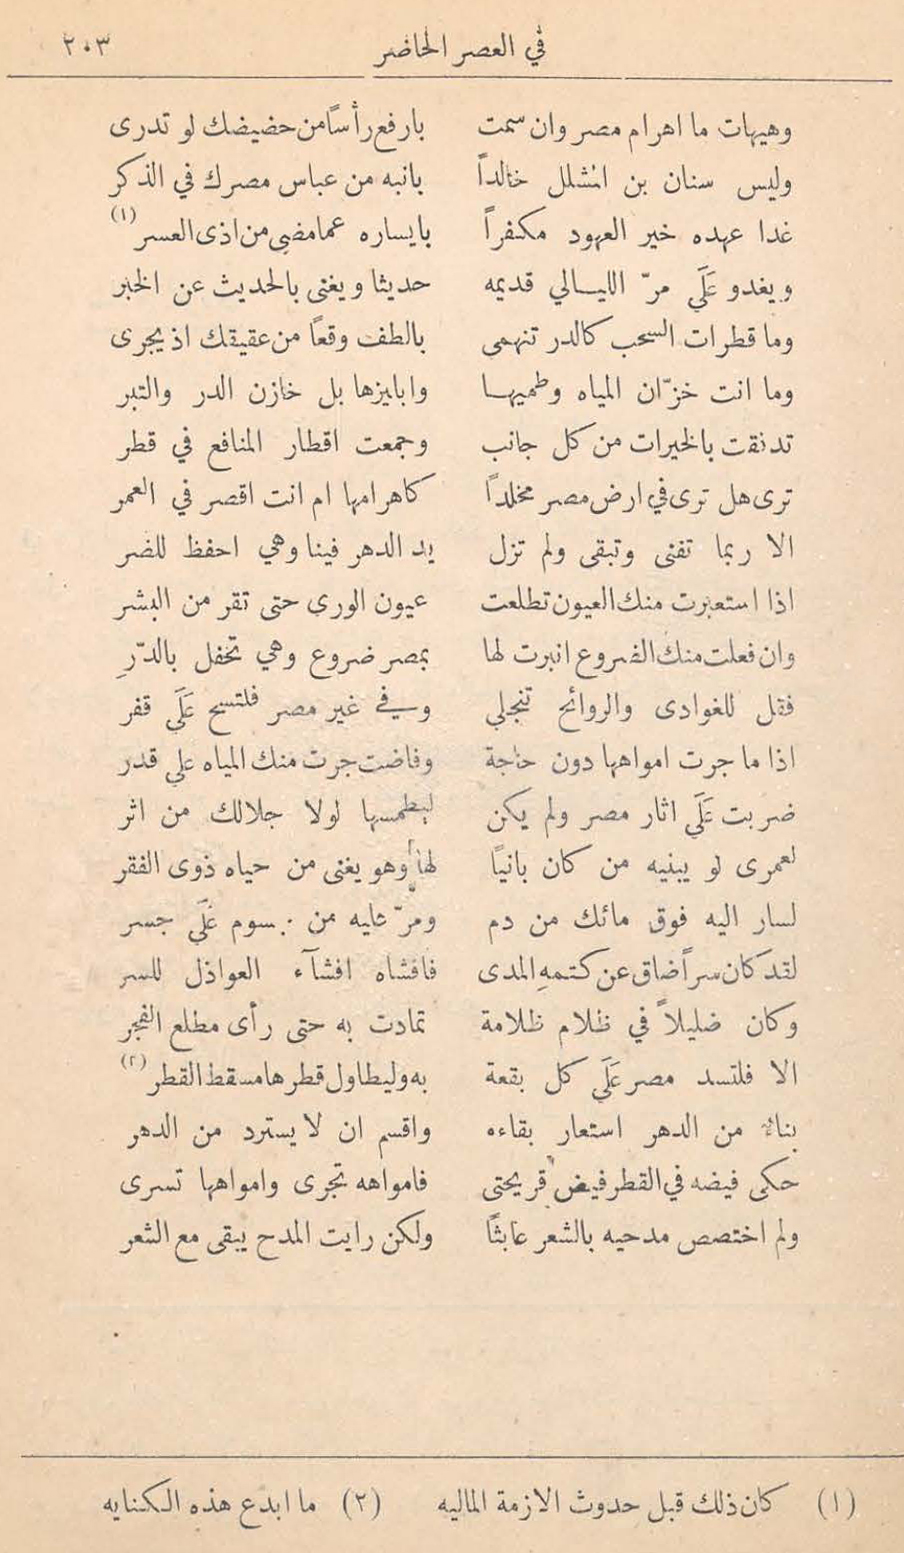 في العصر الحاضر ٢٠٣
وهيهات ما اهرام مصر وان سمت بارفع رأسًا من حضيضك لو تدرى
وليس سنان بن المشلل خالداً بانبه من عباس مصرك في الذكر
غدا عهده خير العهود مكفراً بايساره عما مضى من اذى العسر (١)
ويغدو عَلَى مرّ الليالي قديمه حديثا ويغنى بالحديث عن الخبر
وما قطرات السحب كالدر تنهمى بالطف وقعًا من عقيقك اذ يجرى
وما انت خزّان المياه وطميها وابليزها بل خازن الدر والتبر
تدفقت بالخيرات من كل جانب وجمعت اقطار المنافع في قطر
ترى هل ترى في ارض مصر مخلدًا كاهرامها ام انت اقصر في العمر
الا ربما تفنى وتبقى ولم تزل يد الدهر فينا وهي احفظ للضر
اذا استعبرت منك العيون تطلعت عيون الورى حتى تقر من البشر
وان فعلت منك الضروع انبرت لها بمصر ضروع وهي تحفل بالدّرِ
فقل للغوادى والروائح تنجلي وفي غير مصر فلتسح عَلَى قفر
اذا ما جرت امواهها دون حاجة وفاضت جرت منك المياه على قدر
ضربت عَلَى اثار مصر ولم يكن ليطمسها لولا جلالك من اثر
لعمرى لو يبنيه من كان بانيًا لها وهو يغنى من حياه ذوى الفقر
لسار اليه فوق مائك من دم ومرّ عليه من جسوم عَلَى جسر
لقد كان سراً ضاق عن كتمهِ المدى فافشاه افشآء العواذل للسر
وكان ضليلاً في ظلام ظلامة تمادت به حتى رأى مطلع الفجر
الا فلتسد مصر عَلَى كل بقعة به وليطاول قطرها مسقط القطر (٢)
بناء من الدهر استعار بقاءه واقسم ان لا يسترد من الدهر
حكى فيضه في القطر فيض قريحتى فامواهه تجرى وامواهها تسرى
ولم اختصص مدحيه بالشعر عابثًا ولكن رايت المدح يبقى مع الشعر
(١) كان ذلك قبل حدوث الازمة الماليه (٢) ما ابدع هذه الكنايه